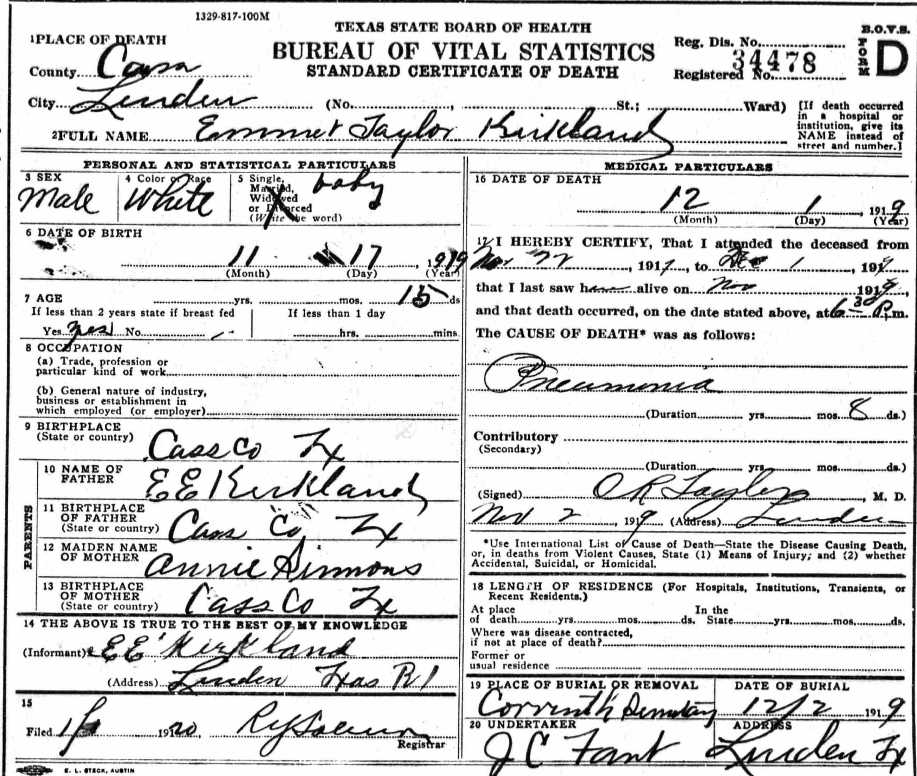 1329-817-100M
TEXAS STATE BOARD OF HEALTH
BUREAU OF VITAL STATISTICS
STANDARD CERTIFICATE OF DEATH
B.O.V.S.
FORM D
Reg. Dis. No.
Registered No. 34478
1 PLACE OF DEATH
County Cass
City Linden (No. , St.; Ward)
[If death occurred in a hospital or institution, give its NAME instead of street and number.]
2 FULL NAME Emmet Taylor Kirkland
PERSONAL AND STATISTICAL PARTICULARS
3 SEX
Male
4 Color or Race
White
5 Single, Married, Widowed or Divorced (Write the word)
baby
6 DATE OF BIRTH
11 17 1919
(Month) (Day) (Year)
7 AGE
yrs. mos. 15 ds
If less than 2 years state if breast fed
Yes yes No
If less than 1 day
hrs. mins
8 OCCUPATION
(a) Trade, profession or
particular kind of work
(b) General nature of industry,
business or establishment in
which employed (or employer)
9 BIRTHPLACE
(State or country)
Cass Co Tx
PARENTS
10 NAME OF FATHER
E E Kirkland
11 BIRTHPLACE OF FATHER
(State or country)
Cass Co Tx
12 MAIDEN NAME OF MOTHER
Annie Simmons
13 BIRTHPLACE OF MOTHER
(State or country)
Cass Co Tx
14 THE ABOVE IS TRUE TO THE BEST OF MY KNOWLEDGE
(Informant) E E Kirkland
(Address) Linden Txas R1
15
Filed 1920
Registrar
E. L. STECK, AUSTIN
MEDICAL PARTICULARS
16 DATE OF DEATH
12 1 1919
(Month) (Day) (Year)
17 I HEREBY CERTIFY, That I attended the deceased from
Nov 22, 1919, to Dec 1, 1919
that I last saw h alive on Nov 1919
and that death occurred, on the date stated above, at 6 30 P.m.
The CAUSE OF DEATH* was as follows:
Pneumonia
(Duration yrs. mos. 8 ds.)
Contributory
(Secondary)
(Duration yrs. mos. ds.)
(Signed) O R Taylor, M. D.
Nov 2 1919 (Address) Linden
*Use International List of Cause of Death—State the Disease Causing Death,
or, in deaths from Violent Causes, State (1) Means of Injury; and (2) whether
Accidental, Suicidal, or Homicidal.
18 LENGTH OF RESIDENCE (For Hospitals, Institutions, Transients, or
Recent Residents.)
At place of death yrs. mos. ds. In the State yrs. mos. ds.
Where was disease contracted,
if not at place of death?
Former or
usual residence
19 PLACE OF BURIAL OR REMOVAL
DATE OF BURIAL
12/2 1919
20 UNDERTAKER
J C Fant
ADDRESS
Linden Tx